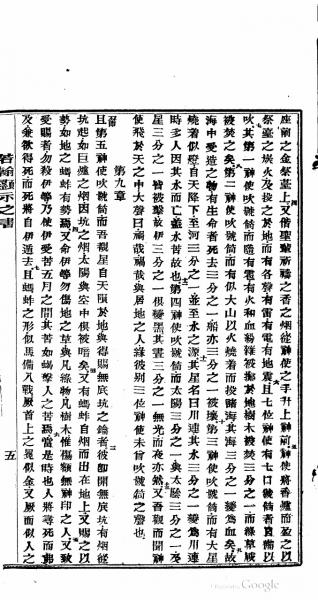 座前之金祭臺上又偕聖輩祈禱之香之烟從神使之手升上神前神使將香爐而盈之以
祭臺之炭火及投之於地而有各聲有雷有電有地震且七位神使有七口號筒者豫備以
吹其第一神使吹號筒而隨有火和血為雹被擲於地樹木被焚三分之一而綠草皆
被焚之矣第二神使吹號筒而有似大山以火燒着而投諸海其海三分之一變為血矣故
海中受造之物有生命者死去三分之一船亦三分之一被壞第三神使吹號筒而有
燒着似燈自天隕下至河三分之一並至水之源其星名曰川連其水三分之一變為川連
時多人因其水而亡蓋水苦故也第四神使吹號筒而太陽三分之一與太陰三分之一及
星三分之一皆被擊故伊三分之一俱變黑其晝三分之一無光而夜亦然又吾觀而聞神
使飛於天之中大聲曰禍哉禍哉與居地之人緣彼別三位神使未曾吹號筒之聲也
第九章
且第五神使吹號筒而吾觀星自天隕於地與得賜無底坑之鑰者彼卽開無底坑有烟從
坑起如巨爐之烟因坑之烟太陽與空中俱被暗矣又有螞蚱自烟而出在地上又賜之以
勢如地之蝎有勢焉又命伊等勿傷地之草與凡綠物凡樹木惟傷額無神印之人又致
受賜者勿殺伊等乃使伊受苦五月之間其苦如蝎擊人之苦焉當是時也人將尋死而弗
及兼欲得死而死將自伊遁去且螞蚱之形似馬備凡戰厥首上之冕似金又厥面似人之
若翰顯示之書
五
Google